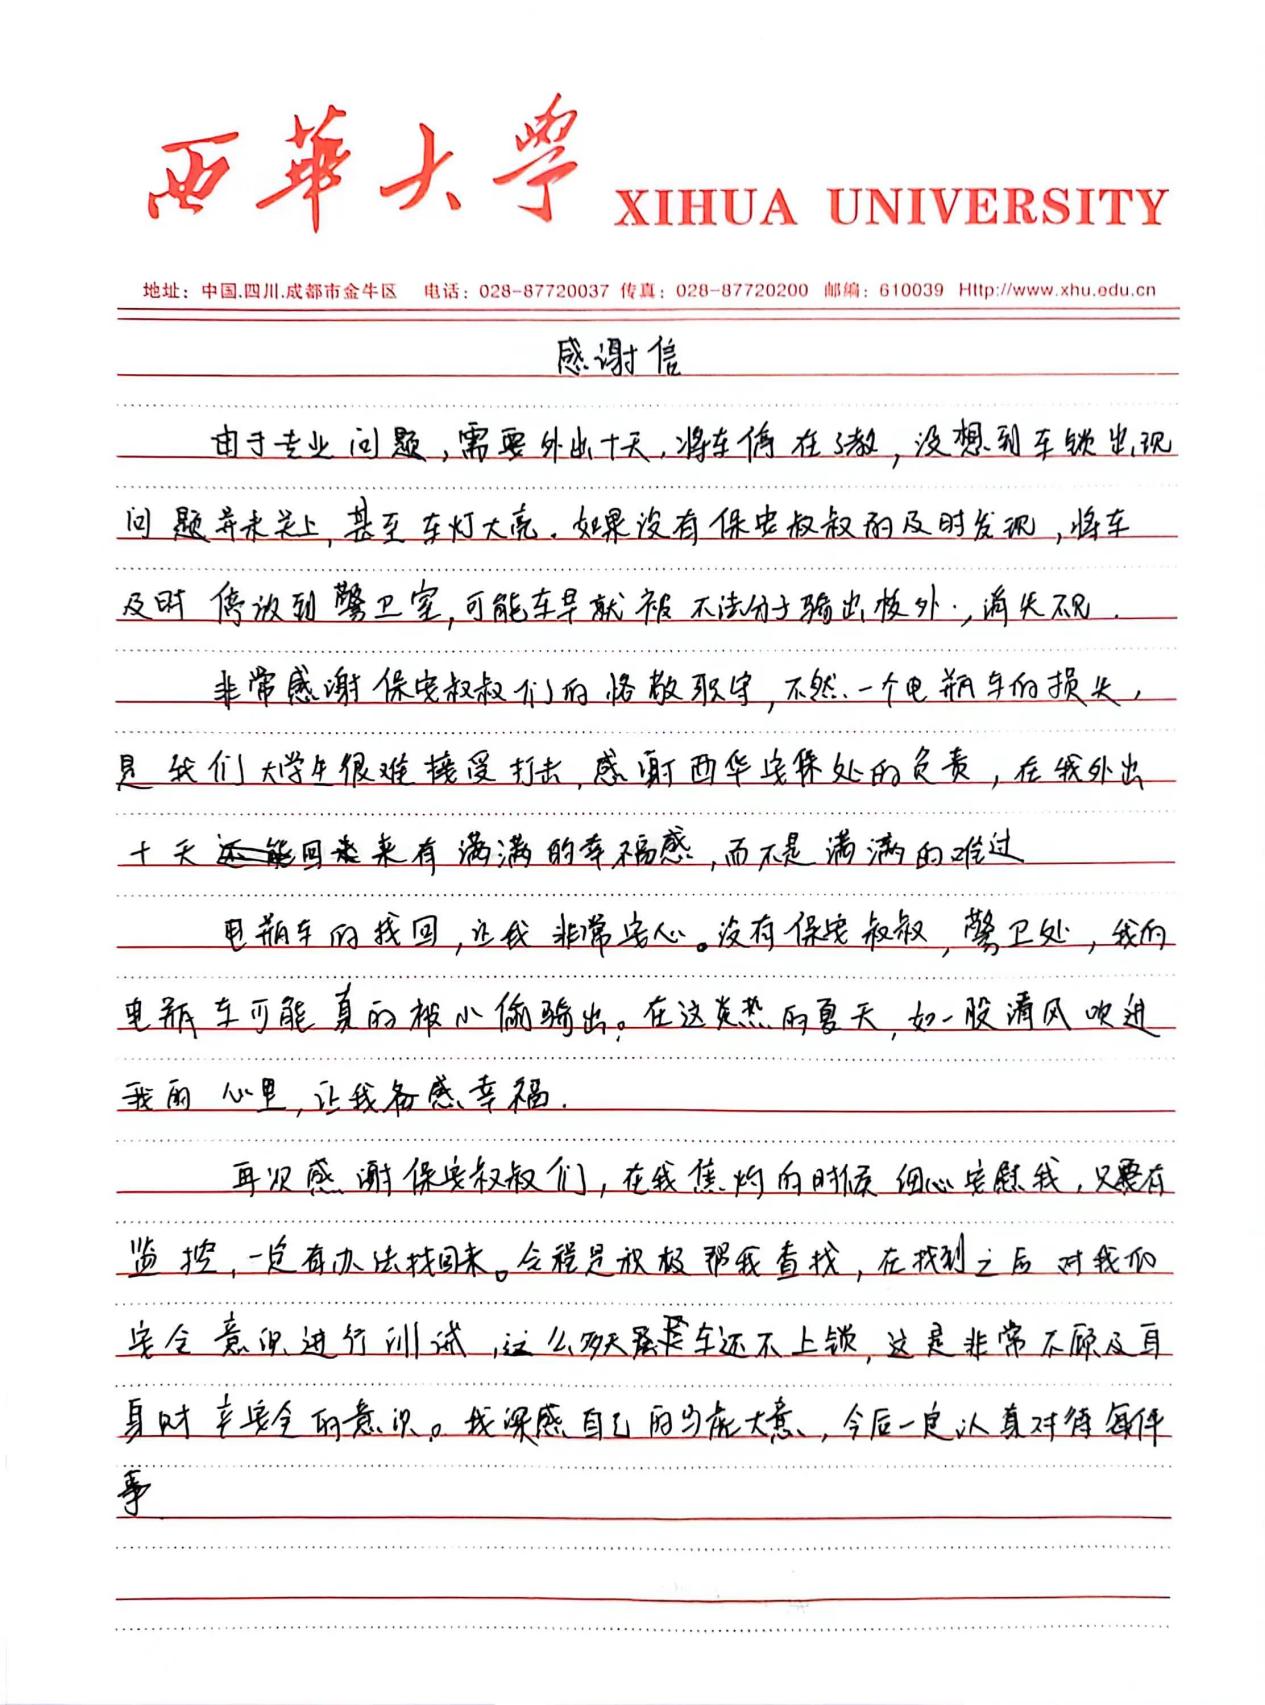 西華大學 XIHUA UNIVERSITY
地址：中国.四川.成都市金牛区 电话：028-87720037 传真：028-87720200 邮编：610039 Http://www.xhu.edu.cn
感谢信
由于专业问题，需要外出十天，将车停在5教，没想到车锁出现
问题并未关上，甚至车灯大亮．如果没有保安叔叔的及时发现，将车
及时停放到警卫室，可能车早就被不法分子骑出校外，消失不见．
非常感谢保安叔叔们的恪敬职守，不然一个电瓶车的损失，
是我们大学生很难接受打击，感谢西华安保处的负责，在我外出
十天回来有满满的幸福感，而不是满满的难过
电瓶车的找回，让我非常安心。没有保安叔叔，警卫处，我的
电瓶车可能真的被小偷骑出。在这炎热的夏天，如一股清风吹进
我的心里，让我备感幸福．
再次感谢保安叔叔们，在我焦灼的时候细心安慰我，只要有
监控，一定有办法找回来。全程是积极帮我查找，在找到之后对我们
安全意识进行训试，这么多天车还不上锁，这是非常不顾及自
身财产安全的意识。我深感自己的马虎大意，今后一定认真对待每件
事